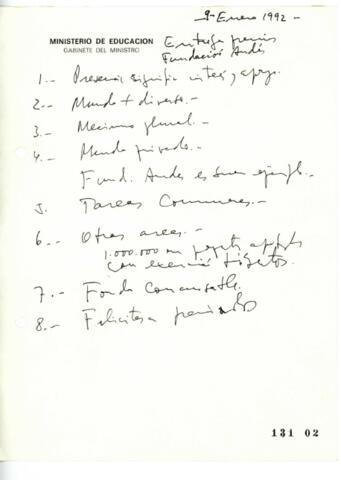 9-Enero 1992.-
MINISTERIO DE EDUCACION
GABINETE DEL MINISTRO
Entrega premios
Fundación Andes
1.- Presencia significa interés y apoyo.
2.- Mundo + diverso.-
3.- plural.-
4.- Mundo privado.-
Fund. Andes es buen ejemplo.-
5. Tareas Comunes.-
6.- Otras areas.-
1.000.000 en
con exención
7.- Fondo
8.- Felicitar a premiados
131 02